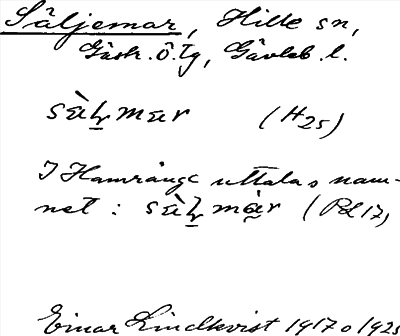 Säljemar, Hille sn,
Gästr. Ö. Tg, Gävleb. l.
sàl̠mar (H25)
I Hamrånge uttalas nam-
net: sàl̠màr (Pd 17)
Einar Lindkvist 1917 o 1925